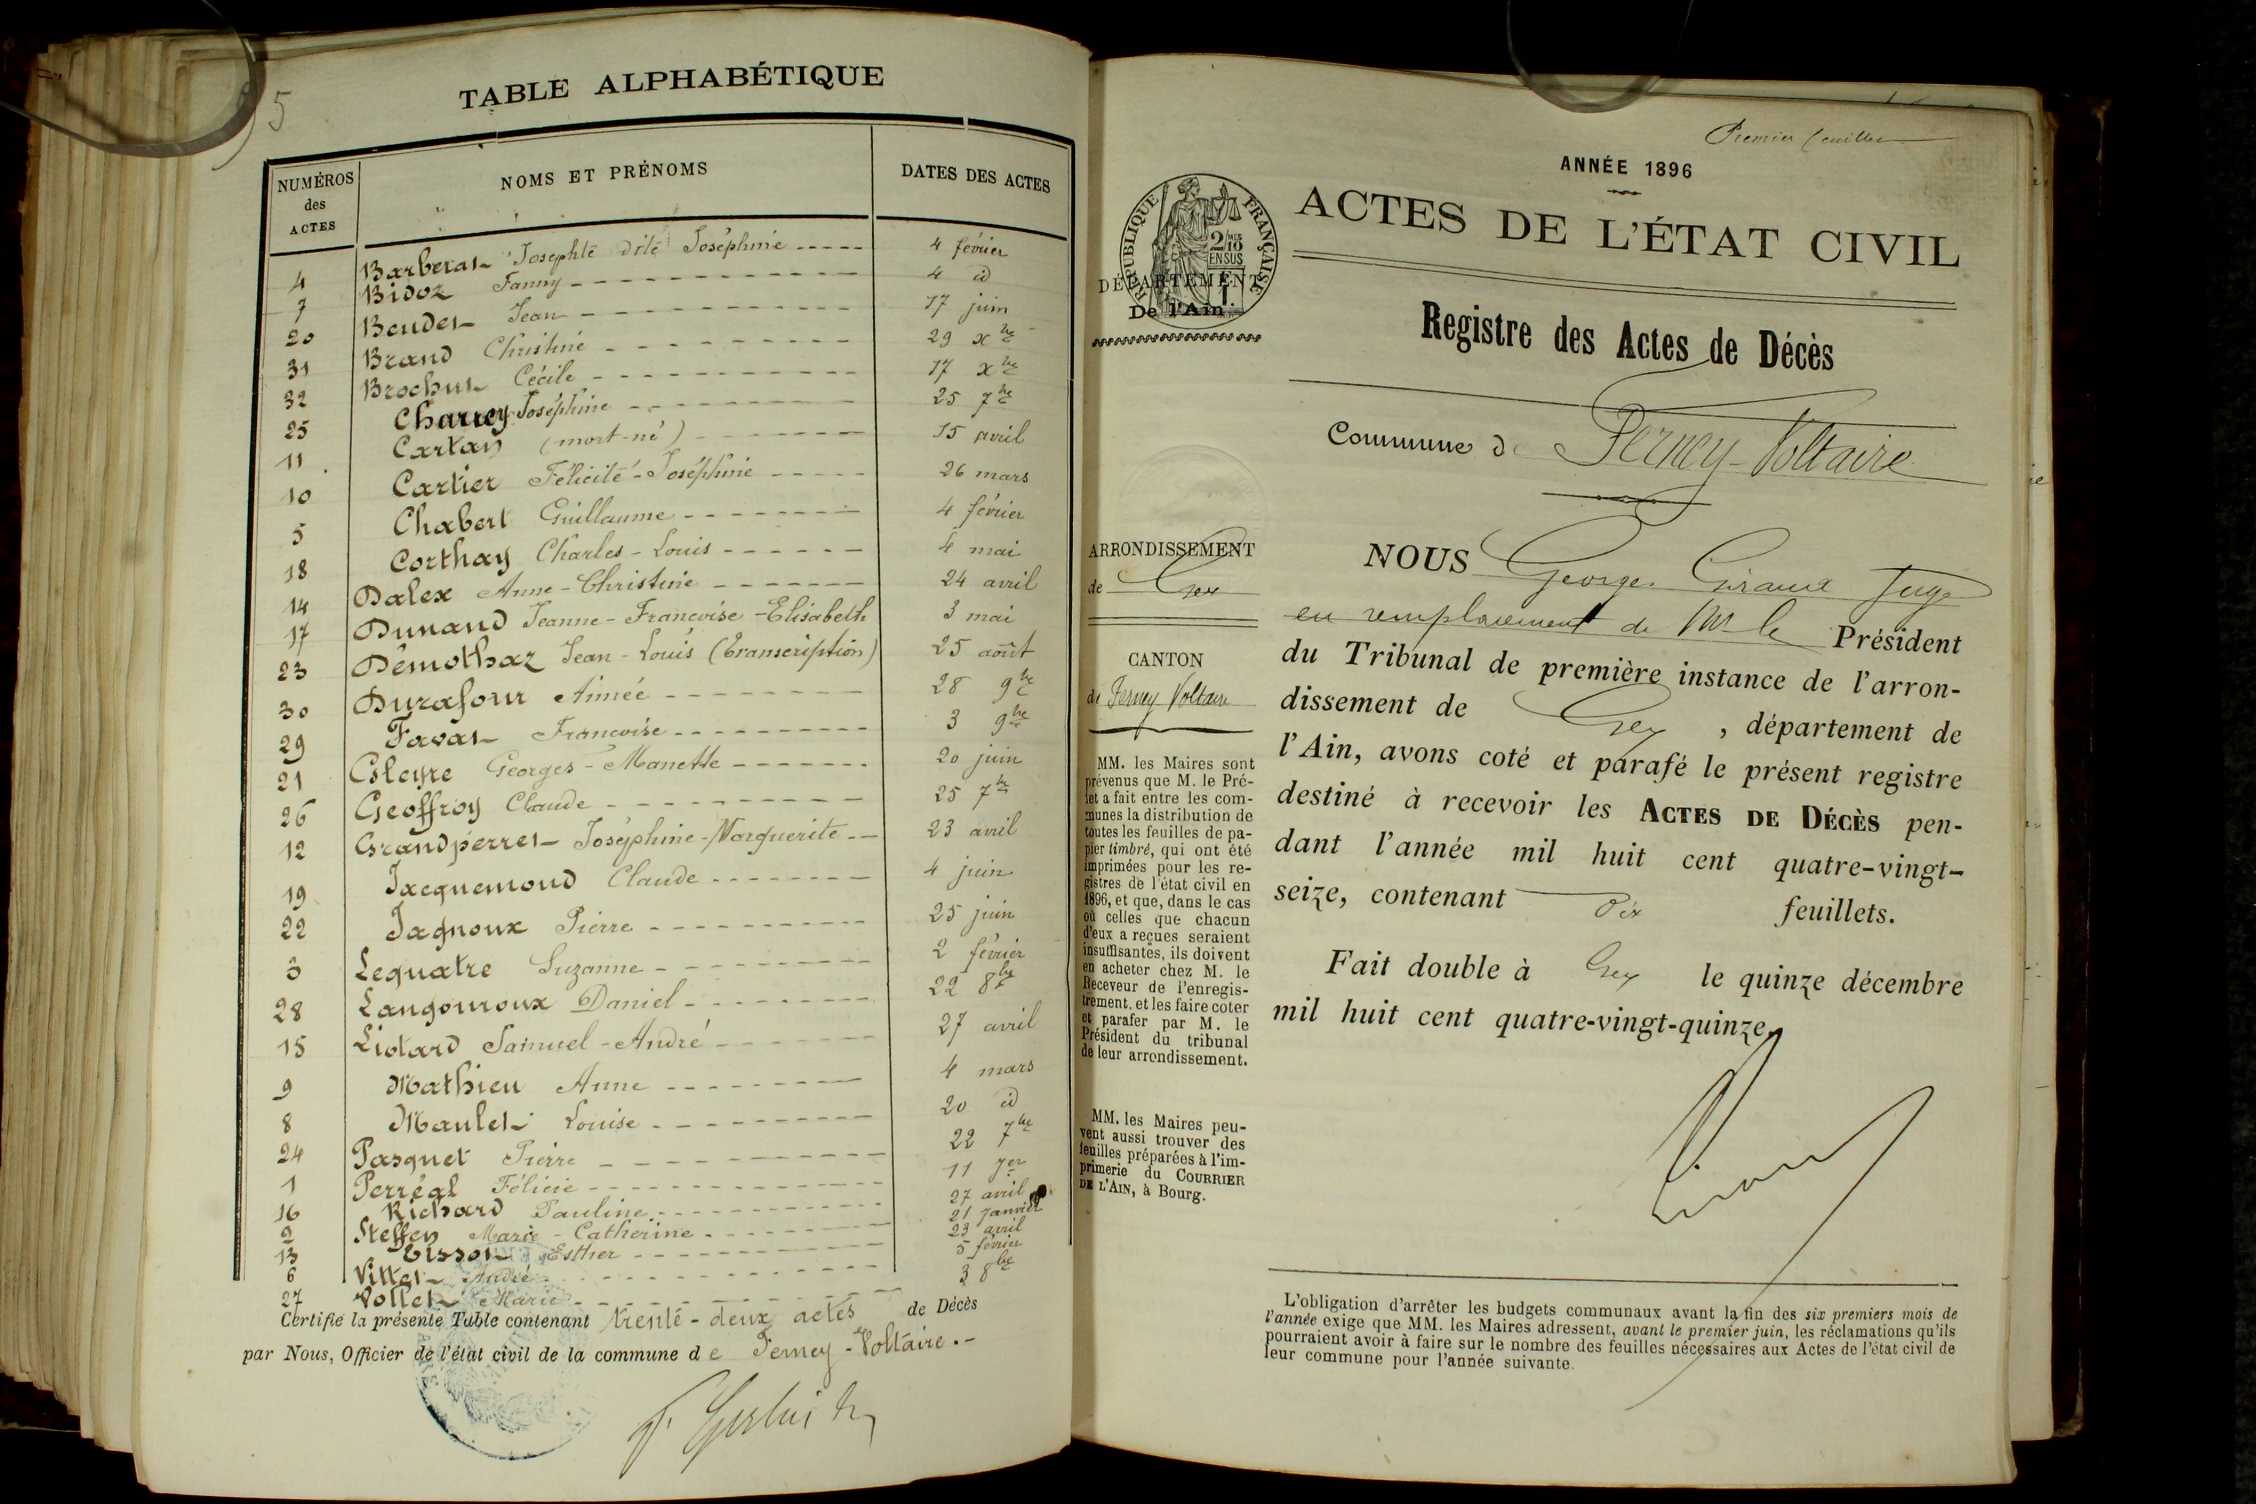 5
TABLE ALPHABÉTIQUE
NUMÉROS des ACTES
NOMS ET PRÉNOMS
DATES DES ACTES
4 Barberat Josephte dite Joséphine 4 février
7 Bidoz Fanny 4 id
20 Beudet Jean 17 juin
31 Brand Christine 29 xbre
32 Brochut Cécile 17 xbre
25 Charrey Joséphine 25 7bre
11 Cartan (mort-né) 15 avril
10 Cartier Félicité-Joséphine 26 mars
5 Chabert Guillaume 4 février
18 Corthay Charles-Louis 4 mai
14 Dalex Anne-Christine 24 avril
17 Dunand Jeanne-Francoise-Elisabeth 3 mai
23 Démothaz Jean-Louis (Transcription) 25 août
30 Durafour Aimée 28 9bre
29 Favat Francoise 3 9bre
21 Gleyre Georges-Manette 20 juin
26 Geoffroy Claude 25 7bre
12 Grandperret Joséphine-Marguerite 23 avril
19 Jacquemoud Claude 4 juin
22 Jagnoux Pierre 25 juin
3 Lequatre Suzanne 2 février
28 Langouroux Daniel 22 8bre
15 Liotard Samuel-André 27 avril
9 Mathieu Anne 4 mars
8 Maulet Louise 20 id
24 Pasquet Pierre 22 7bre
1 Perréal Félicie 11 Jer
16 Richard Pauline 27 avril
2 Steffen Marie-Catherine 21 janvier
13 Tissot Esther 23 avril
6 Vittet André 5 février
27 Vollet Marie 3 8bre
Certifié la présente Table contenant trente-deux actes de Décès
par Nous, Officier de l'état civil de la commune de Ferney-Voltaire.-
Premier feuillet
ANNÉE 1896
ACTES DE L'ÉTAT CIVIL
RÉPUBLIQUE FRANÇAISE
2/10 EN SUS
DÉPARTEMENT
De l'Ain
Registre des Actes de Décès
Commune de Ferney-Voltaire
ARRONDISSEMENT
de Gex
CANTON
de Ferney Voltaire
MM. les Maires sont
prévenus que M. le Pré-
fet a fait entre les com-
munes la distribution de
toutes les feuilles de pa-
pier timbré, qui ont été
imprimées pour les re-
gistres de l'état civil en
1896, et que, dans le cas
où celles que chacun
d'eux a reçues seraient
insuffisantes, ils doivent
en acheter chez M. le
Receveur de l'enregis-
trement, et les faire coter
et parafer par M. le
Président du tribunal
de leur arrondissement.
MM. les Maires peu-
vent aussi trouver des
feuilles préparées à l'im-
primerie du COURRIER
DE L'AIN, à Bourg.
NOUS Georges Giraud Juge
en remplacement de Mr le Président
du Tribunal de première instance de l'arron-
dissement de Gex, département de
l'Ain, avons coté et parafé le présent registre
destiné à recevoir les ACTES DE DÉCÈS pen-
dant l'année mil huit cent quatre-vingt-
seize, contenant Dix feuillets.
Fait double à Gex le quinze décembre
mil huit cent quatre-vingt-quinze.
L'obligation d'arrêter les budgets communaux avant la fin des six premiers mois de
l'année exige que MM. les Maires adressent, avant le premier juin, les réclamations qu'ils
pourraient avoir à faire sur le nombre des feuilles nécessaires aux Actes de l'état civil de
leur commune pour l'année suivante.